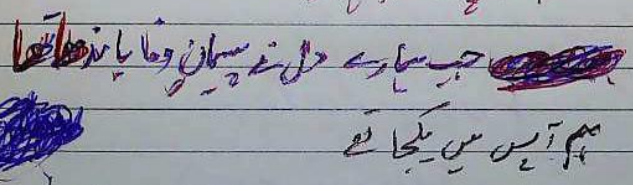 جب ہمارے دل نے پیمانِ وفا باندھا تھا
ہم آپس میں یکجا تھے